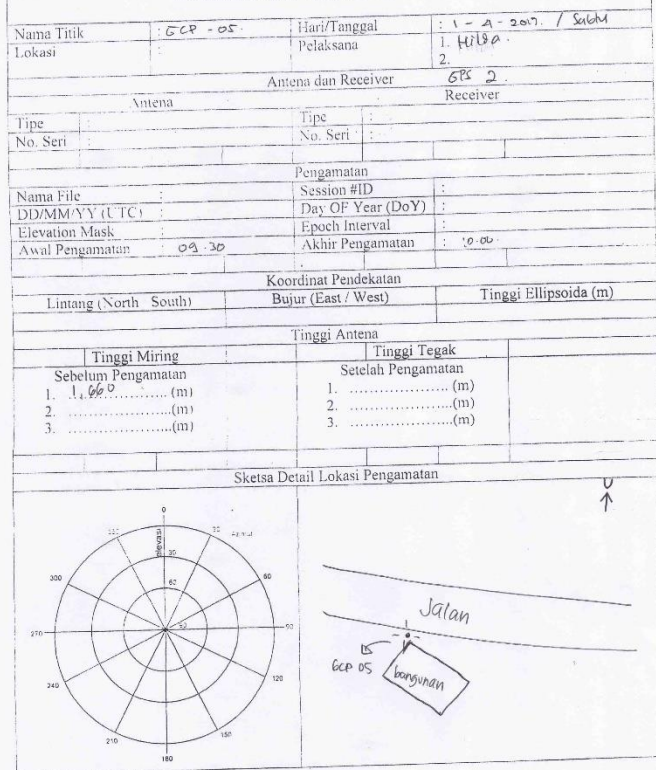 Nama Titik : GCP - 05. Hari/Tanggal : 1 - 4 - 2017. / Sabtu
Lokasi : Pelaksana 1. Hilda.
2.
Antena dan Receiver GPS 2.
Antena Receiver
Tipe : Tipe :
No. Seri : No. Seri :
Pengamatan
Nama File : Session #ID :
DD/MM/YY (UTC) : Day OF Year (DoY) :
Elevation Mask : Epoch Interval :
Awal Pengamatan : 09.30 Akhir Pengamatan :
Koordinat Pendekatan
Lintang (North South) Bujur (East / West) Tinggi Ellipsoida (m)
Tinggi Antena
Tinggi Miring Tinggi Tegak
Sebelum Pengamatan Setelah Pengamatan
1. 1,660 (m) 1. .................... (m)
2. ....................(m) 2. ....................(m)
3. ....................(m) 3. ....................(m)
Sketsa Detail Lokasi Pengamatan
U
0
30
elevasi
30
300 60 60
270 90 90
240 120
210 150
180
Jalan
GCP 05 bangunan